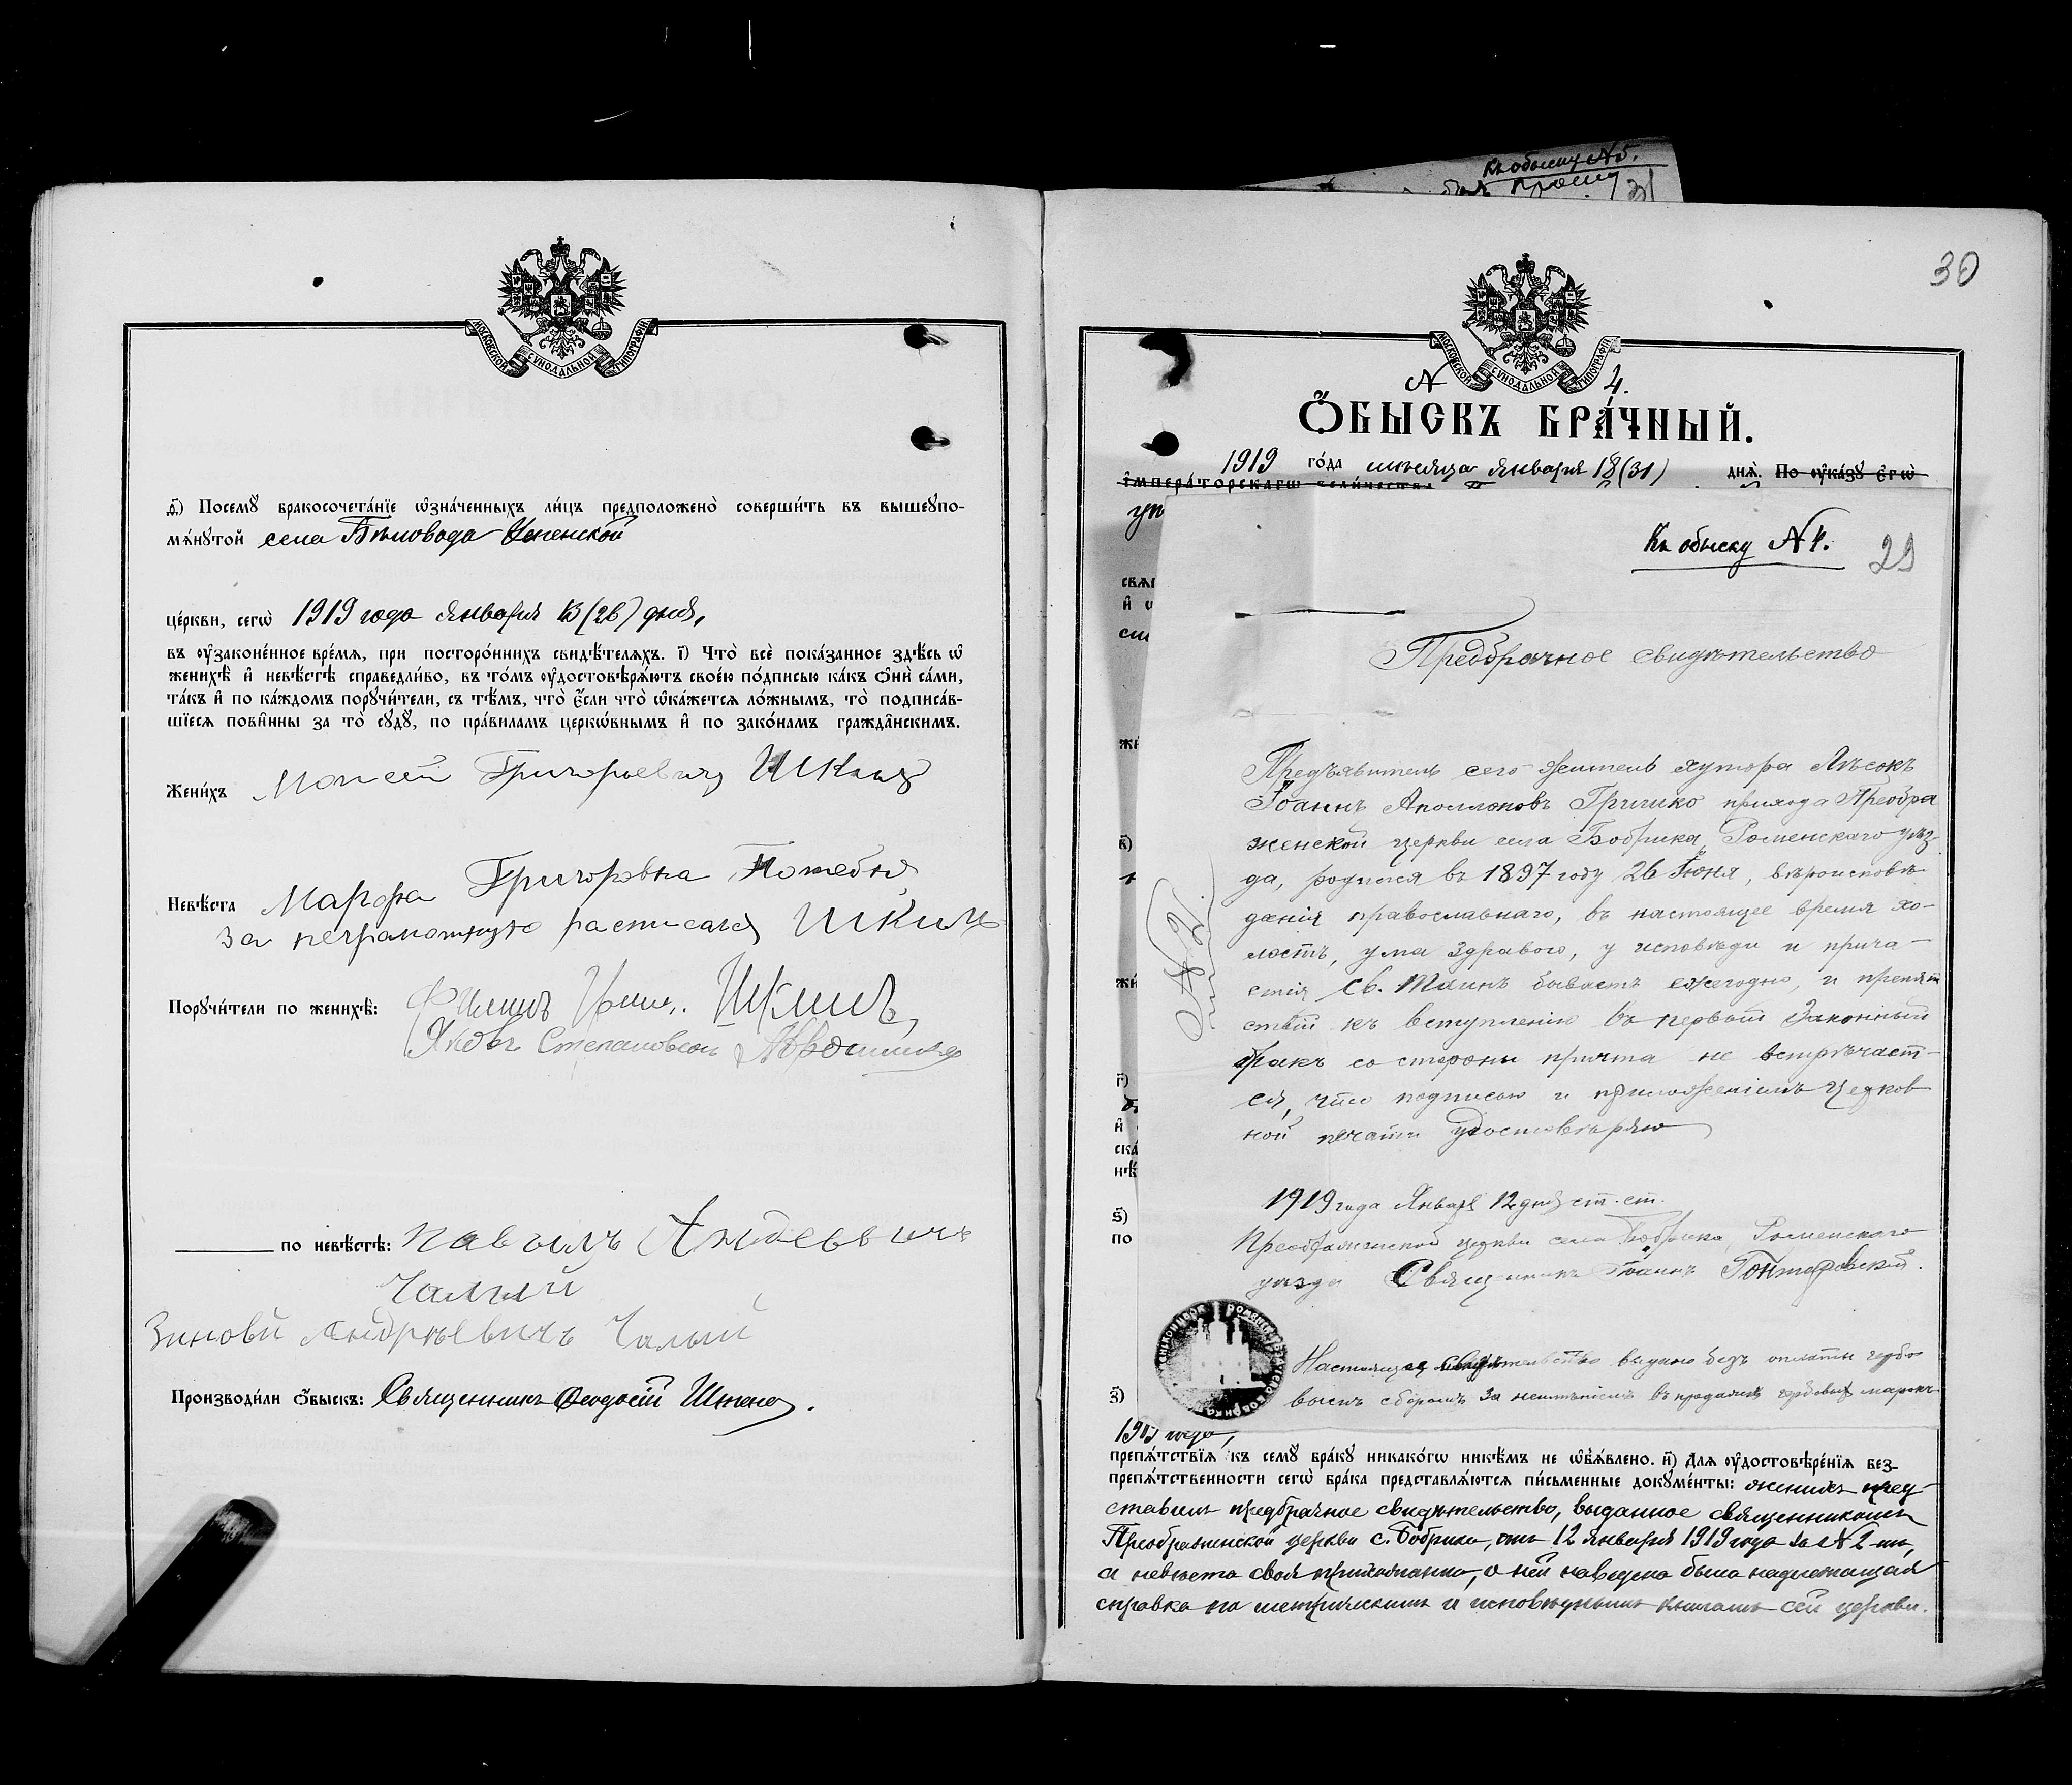 Къ обыску №5.
МОСКОВСКОЙ СУНОДАЛЬНОЙ ТИПОГРАФІИ
ѳ҃) Посемꙋ̀ бракосочета́нїе ѡ҆зна́ченныхъ ли́цъ предположено̀ соверши́ть въ вышеꙋпо-
мѧ́нꙋтой села Бѣловода Успенской
це́ркви, сегѡ̀ 1919 года Января 13 (26) дня,
въ ᲂу҆законе́нное вре́мѧ, при посторо́ннихъ свидѣ́телѧхъ. і҃) Что̀ всѐ пока́занное здѣ́сь ѡ҆
женихѣ̀ и҆ невѣ́стѣ справедли́во, въ то́мъ ᲂу҆достовѣрѧ́ютъ свое́ю по́дписью ка́къ ѻ҆нѝ са́ми,
та́къ и҆ по ка́ждомъ порꙋчи́тели, съ тѣ́мъ, что̀ є҆́сли что̀ ѡ҆ка́жется ло́жнымъ, то̀ подписа́в-
шїеся пови́нны за то̀ сꙋдꙋ̀, по пра́виламъ церко́внымъ и҆ по зако́намъ гражда̂нскимъ.
Жени́хъ Моисей Григорьевичъ Шкиль
Невѣ́ста Марфа Григоровна Потебня
За неграмотную расписался Шкиль
Порꙋчи́тели по женихѣ̀: Филипъ Шкиль,
Яковъ Степановичъ
по невѣ́стѣ: Павылъ Андеевичъ
Чалый
Зиновй Андрѣевичъ Чалый
Производи́ли ѻ҆́быскъ: Священникъ Ѳеодосій
30
МОСКОВСКОЙ СУНОДАЛЬНОЙ ТИПОГРАФІИ
№ 4.
Ѻ҆́БЫСКЪ БРА́ЧНЫЙ.
1919 го́да мѣсяца Января 18 (31) днѧ̀. По ᲂу҆ка́зꙋ є҆гѡ̀
и҆мпера́торскагѡ вели́чества
Къ обыску №4.
29
Предбрачное свидѣтельство
Предъявитель сего житель хутора Лѣсокъ
Іоаннъ Аполлоновъ Гришко прихода Преобра
женской церкви села Бобрика, Роменскаго уѣз-
да, родился въ 1897 году 26 Іюня, вѣроисповѣ-
данія православнаго, въ настоящее время хо-
лостъ, ума здраваго, у исповѣди и прича-
стія Св. Таинъ бываетъ ежегодно, и препят
ствій къ вступленію въ первый Законный
бракъ со стороны причта не встрѣчает-
ся, что подписью и приложеніемъ церков
ной печати удостовѣряю
№ 2.
1919 года Января 12 дня ст. ст.
Преображенской церкви села Бобрика, Роменскаго
уѣзда Священникъ Іоаннъ Гонторовскій.
Настоящее свидѣтельство выдано безъ оплаты гербо
вымъ сборомъ за неимѣніемъ въ продажѣ гербовыхъ марокъ
года,
препѧ́тствїѧ къ семꙋ̀ бра́кꙋ никако́гѡ никѣ́мъ не ѡ҆б̾ѧ́влено. и҃) Для ᲂу҆достовѣре́нїѧ без-
препѧ́тственности сегѡ̀ бра́ка представлѧ́ются пи́сьменные докꙋме́нты: женихъ пред-
ставилъ предбрачное свидѣтельство, выданное священникомъ
Преображенской церкви с. Бобрика, отъ 12 Января 1919 года за № 2-мъ,
а невѣста своя прихожанка, о ней наведена была надлежащая
справка по метрическимъ и исповѣднымъ книгамъ сей церкви.